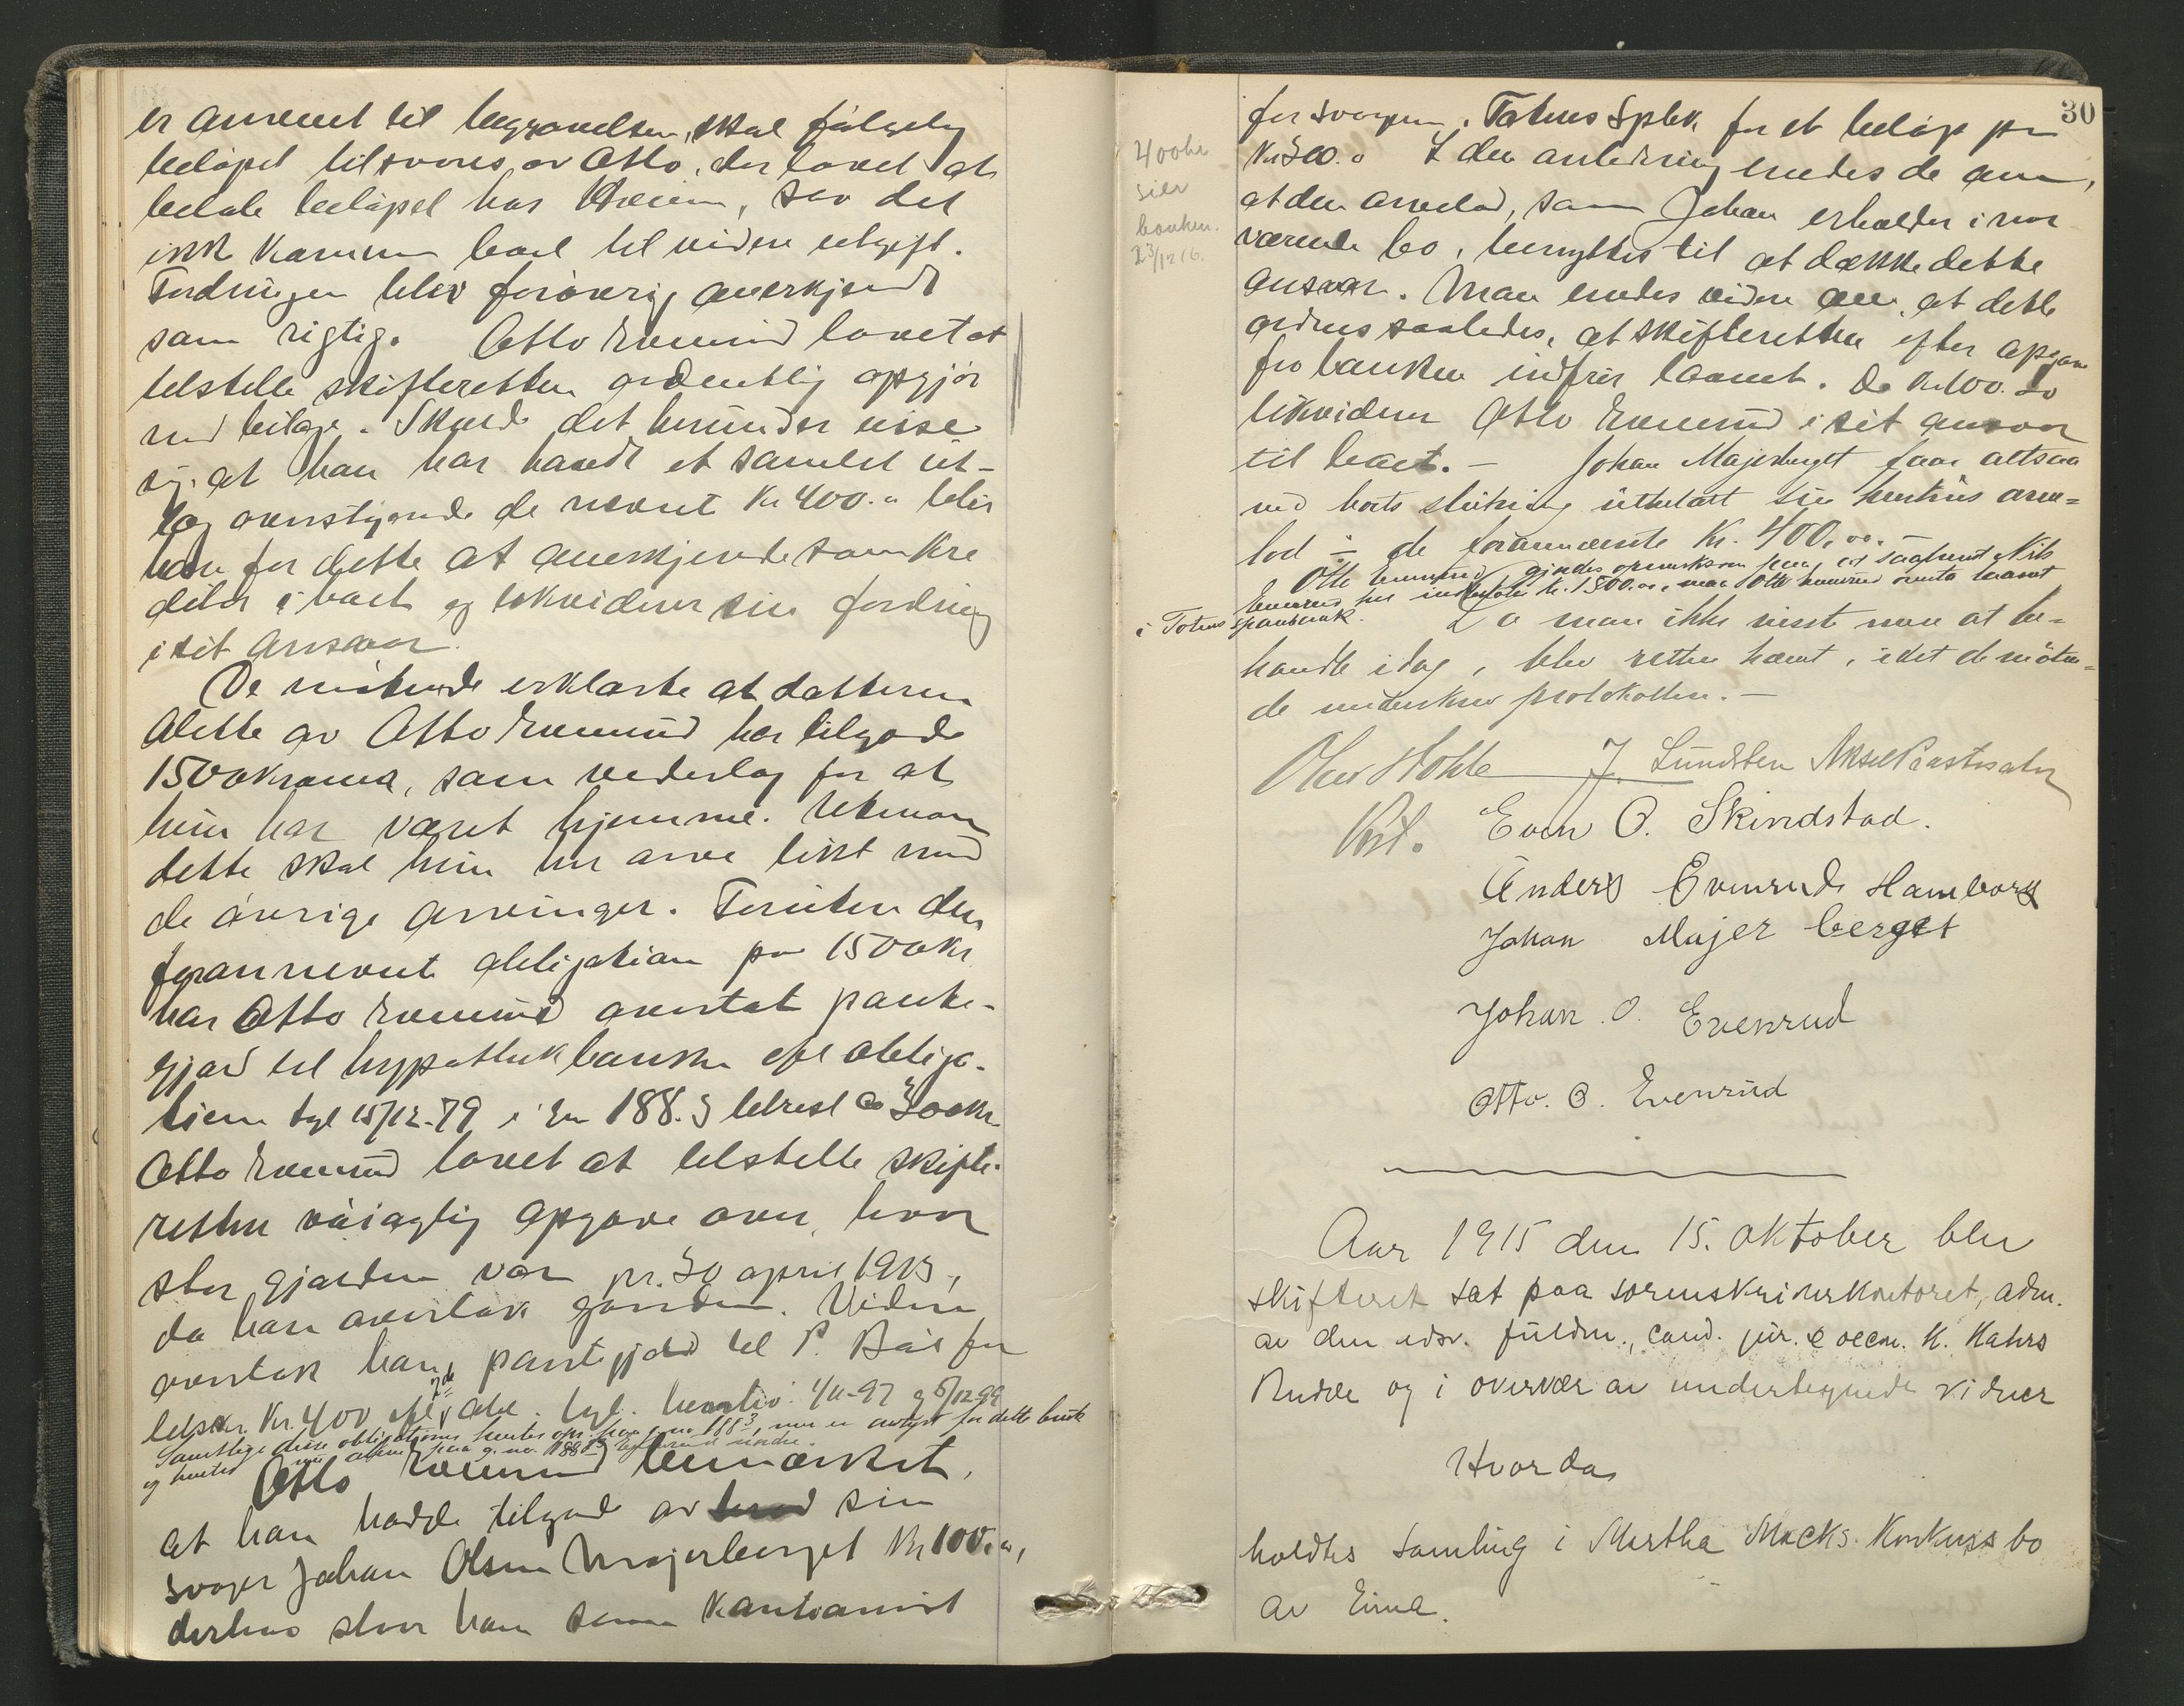 er anvent til begravelsen, skal følgelig
beløpet tilsvares av Otto, der lovet at
betale beløpet hos , saa det
ikke kommer boet til videre utgift.
Fordringen blev forøvrig anerkjendt
som rigtig. Otto Evenrud lovet at
tilstelle skifteretten ordentlig opgjør
med bilage. Skulde det herunder vise
sig, at han har havdt et samlet ut-
læg overstigende de nevnte Kr 400.00 blir
han for dette at anerkjende som kre
ditor i boet og likviderer sin fordring
i sit ansvar.
De møtende erklærte at datteren
Alette av Otto Evenrud har tilgode
1500 kroner, som vederlag for at
hun har været hjemme. Uten om
dette skal hun her arve likt med
de øvrige arvinger. Foruten den
forannevnte obligation paa 1500 kr
har Otto Evenrud overtat pante-
gjæld til hypothekbanken efl obliga-
tion tgl 15/12-79 i gn 188.3 tilrest ca 300 kr.
Otto Evenrud lovet at tilstelle skifte-
retten nøiagtig opgave over, hvor
stor gjælden var pr. 30 april 1913,
da han overtok gaarden. Videre
overtok han pantegjæld til P. Bøe for
tilsam. Kr. 400 efl 2de obl. tgl. henholdsv. 1/11-97 og 5/12-99
Samtlige disse obligationer heftes opr. paa g. no 188 3, men er avlyst for dette bruk
og heftet nu alene paa g. no. 188 Evenrud nedre.
Otto Evenrud bemærket,
at han hadde tilgode av sin
svoger Johan Olsen Majerberget Kr 100.00,
derhos staar han som kautionist
30
400 kr
sier
banken.
23/12 16.
for svogeren i Totens Spbk. for et beløp paa
Kr 300.00 I den anledning enedes de om,
at den arvelod, som Johan erholder i nær
værende bo, benyttes til at dække dette
ansvar. Man enedes videre om, at dette
ordnes saaledes, at skifteretten efter opgave
fra banken indfrir laanet. De Kr 100.00
likviderer Otto Evenrud i sit ansvar
til boet. – Johan Majerberget faar altsaa
ved boets slutning utbetalt sin hustrus arve=
lod ÷ de forannevnte Kr. 400.00. –
Otto Evenrud gjordes opmerksom paa, at saafremt Nils
Evenrud har indbetalt kr. 1500.00, maa Otto Evenrud overta laanet
i Totens sparebank. Da man ikke visste mere at be=
handle idag, blev retten hævet, idet de møten=
de underskrev protokollen. –
Olav Stokke J. Lundsten Aksel Raastadsæter
Even O. Skindstad.
Anders Evenruds Hamborg
Johan Majer berget
Johan O. Evenrud
Otto. O. Evenrud
Aar 1915 den 15. oktober blev
skifteret sat paa sorenskriverkontoret, adm.
av den edsv. fuldm., cand. jur. & oecon. K. Kahrs
Budde og i overvær av undertegnede vidner
Hvorda
holdtes samling i Martha Moeks Konkurs bo
av Eina.